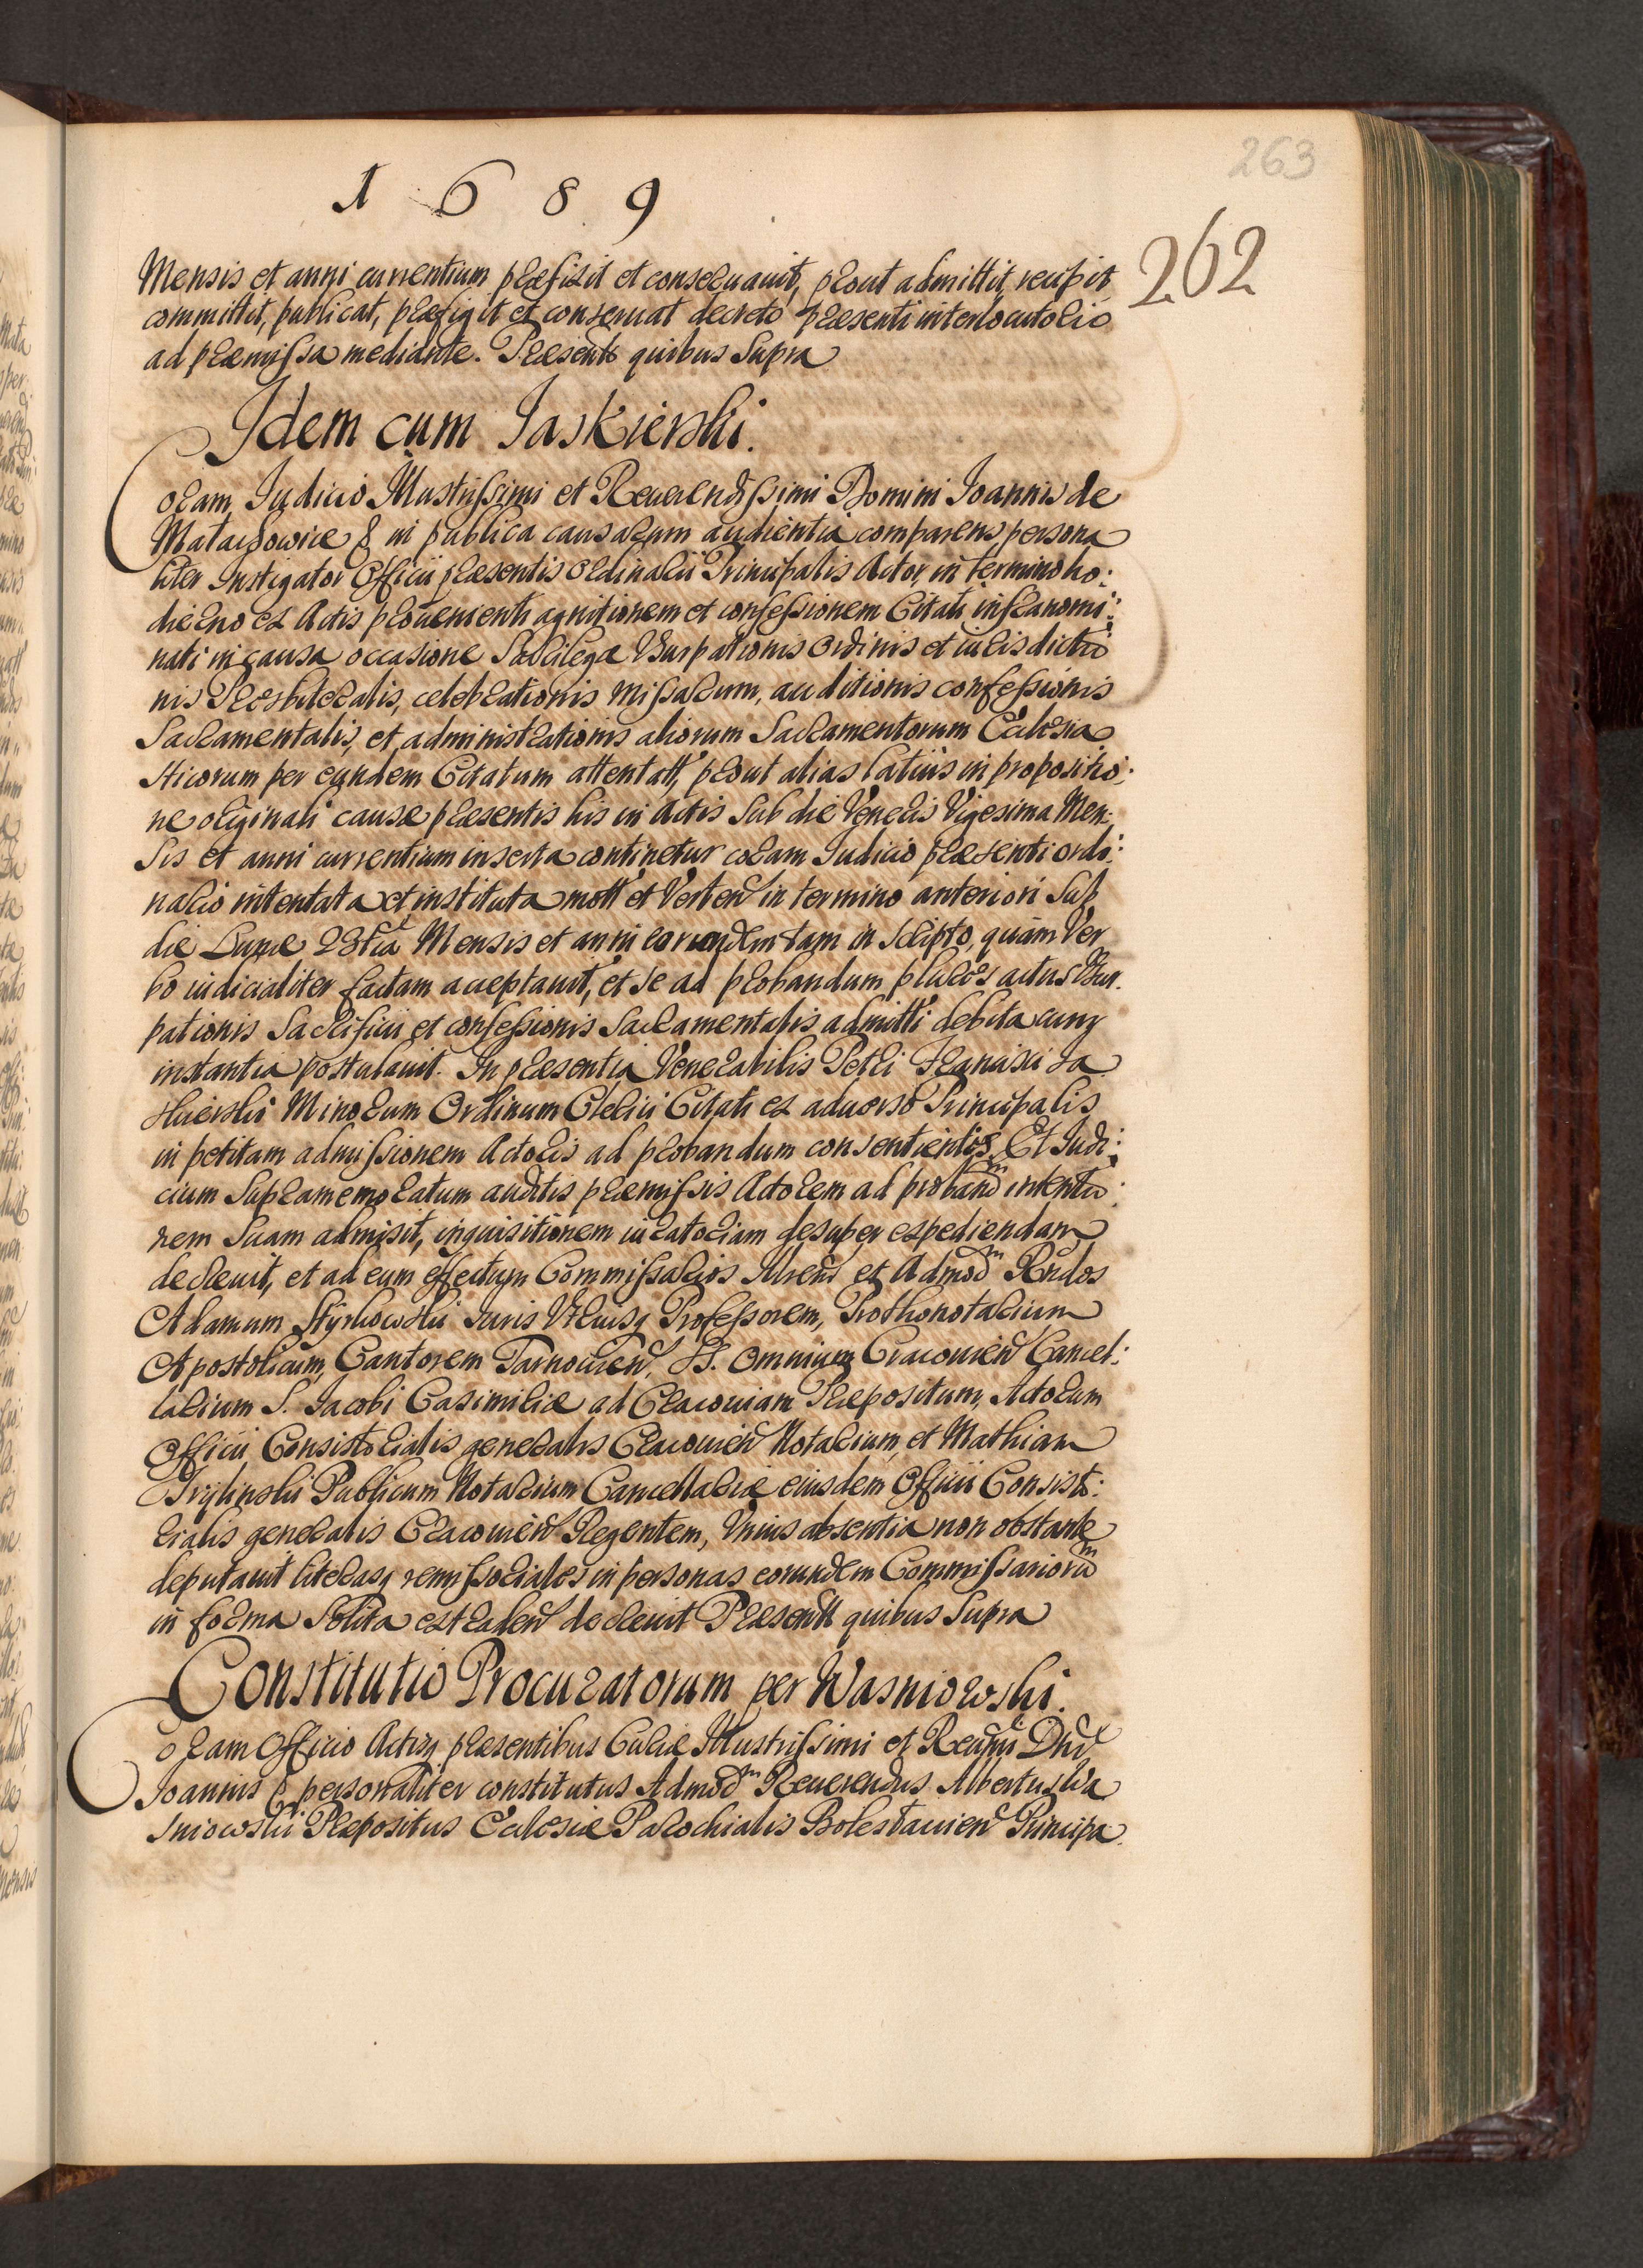 263
1689
262
Mensis et anni currentium præfixit et conseruauit, prout admittit, recipit
committit, publicat, præfigit et conseruat decreto præsenti interlocutorio
ad præmissa mediante. Præsentt quibus Supra
Idem cum Jaskierski.
Coram Iudicio Illustrissimi et Reuerendissimi Domini Ioannis de
Małachowice & in publica causarum audientia comparens persona
liter Instigator Officii præsentis ordinarii Principalis Actor, in termino ho:
dierno ex Actis prouenienti agnitionem et confessionem Citati infranomi:
nati in causa occasione Sacrilegæ Vsurpationis Ordinis et iurisdictio
nis Præsbiteralis, celebrationis missarum, auditionis confessionis
Sacramentalis, et administrationis aliorum Sacramentorum Ecclesia
sticorum per eundem Citatum attentatt, prout alias latius in propositio:
ne originali causæ præsentis his in Actis Sub die Veneris Vigesima Men:
sis et anni currentium inserta continetur coram Iudicio præsenti ordi:
nario intentata et instituta mott et Verten in termino anteriori Sub
die Lunæ 23tia Mensis et anni eorundem tam in Scripto, quàm Ver
bo iudicialiter factam acceptauit, et se ad probandum plures actus Vsur
pationis Sacrificii et confessionis Sacramentalis admitti debita cum
instantia postulauit. In præsentia Venerabilis Petri Francisci Ja
skierski Minorum Ordinum Clerici Citati ex aduerso Principalis
in petitam admissionem Actoris ad probandum consentientis. Et Iudi:
cium Supramemoratum auditis præmissis Actorem ad proband intentio:
nem Suam admisit, inquisitionem iuratoriam desuper expediendam
decreuit, et ad eum effectum Commissarios Illrend et Admod Rndos
Adamum Styrkowski Iuris Vtriusq Professorem, Prothonotarium
Apostolicum, Cantorem Tarnouien, SS. Omnium Cracouien Cancel:
larium S. Jacobi Casimiriæ ad Cracouiam Præpositum, Actorum
Officii Consistorialis generalis Cracouien Notarium, et Mathiam
Publicum Notarium Cancellariæ eiusdem Officii Consisto:
rialis generalis Cracouien Regentem, Vnius absentia non obstante
deputauit literasq remissoriales in personas eorundem Commissariorum
in forma Solita extraden decreuit Præsentt quibus Supra
Constitutio Procuratorum per Wasniowski.
Coram Officio Actisq præsentibus Curiæ Illustrissimi et Reuermi Dni
Joannis & personaliter constitutus Admod Reuerendus Albertus Wa
sniowski Præpositus Ecclesiæ Parochialis Bolestauien Principa